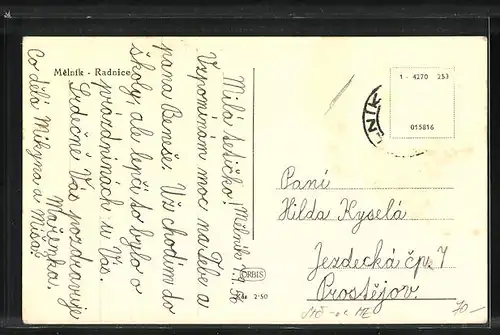 Mělník - Radnice
Mělník 1.9.56
Milá tetičko!
Vzpomínám moc na Tebe a
pana Beneše. Už chodím do
školy, ale lepší to bylo o
prázdninách u Vás.
Srdečně Vás pozdravuje
Mařenka.
Co dělá Mikyna a Míša?
ORBIS
Kčs 2·50
NÍK
1 - 4270 253
015816
Paní
Hilda Kyselá
Jezdecká čp. 7
Prostějov.
70-